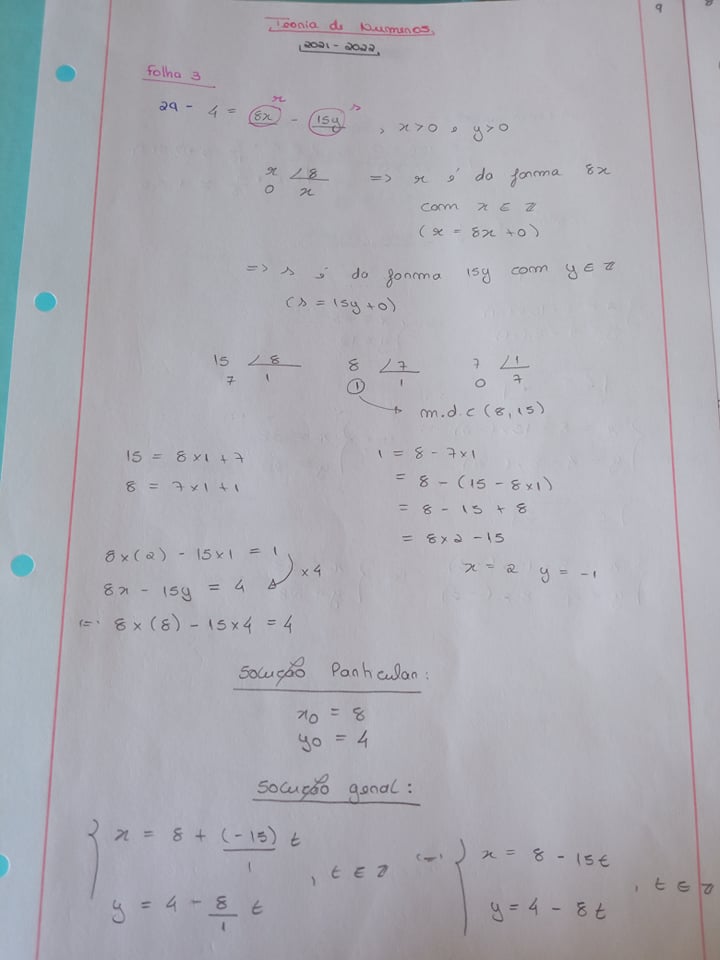 9
Teoria de Números
2021-2022
Folha 3
29 - 4 = 8x - 15y , x>0 e y>0
r s
r ∠8 => r é da forma 8x
0 x com x ∈ ℤ
(r = 8x + 0)
=> s é da forma 15y com y ∈ ℤ
(s = 15y + 0)
15 ∠8 8 ∠7 7 ∠1
7 1 1 1 0 7
m.d.c (8,15)
15 = 8x1 + 7 1 = 8 - 7x1
8 = 7x1 + 1 = 8 - (15 - 8x1)
= 8 - 15 + 8
= 8x2 - 15
8x(2) - 15x1 = 1
x4 x = 2 y = -1
8x - 15y = 4
(=) 8x(8) - 15x4 = 4
Solução Particular:
x0 = 8
y0 = 4
Solução geral:
x = 8 + (-15)/1 t (=) x = 8 - 15t
, t ∈ ℤ , t ∈ ℤ
y = 4 - 8/1 t y = 4 - 8t